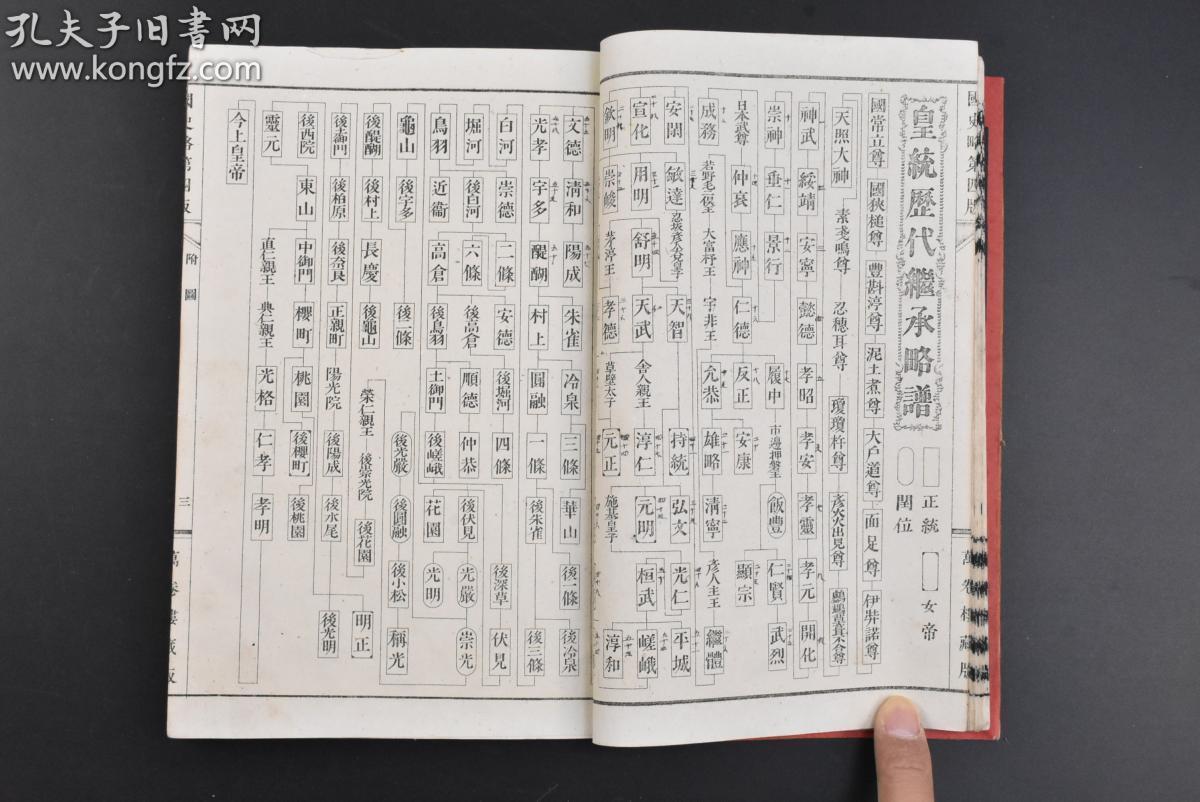 孔夫子旧书网
www.kongfz.com
國史略第四版
萬卷樓藏版
皇統歷代繼承略譜
正統
女帝
閏位
國常立尊 國狹槌尊 豐斟渟尊 泥土煮尊 大戶道尊 面足尊 伊弉諾尊
天照大神 素戔嗚尊 忍穗耳尊 瓊瓊杵尊 彥火火出見尊
神武 綏靖 安寧 懿德 孝昭 孝安 孝靈 孝元 開化
崇神 垂仁 景行
日本武尊 仲哀 應神 仁德 履中 市邊押磐王 飯豐 仁賢 武烈
反正 安康 顯宗
成務 若野毛二俣王 大富杼王 宇非王 允恭 雄略 清寧 彥人主王 繼體
安閑 敏達 忍坂彥人大兄皇子 天智 持統 弘文 光仁 平城
宣化 用明 舒明 天武 舍人親王 淳仁 元明 桓武 嵯峨
欽明 崇峻 茅渟王 孝德 草壁太子 元正 施基皇子 淳和
文德 清和 陽成 朱雀 冷泉 三條 華山 後一條 後冷泉
光孝 宇多 醍醐 村上 圓融 一條 後朱雀 後三條
白河 崇德 二條 安德 後堀河 四條 後深草 伏見
堀河 後白河 六條 後高倉 順德 仲恭 後伏見 光嚴 崇光
鳥羽 近衞 高倉 後鳥羽 土御門 後嵯峨 花園 光明
龜山 後宇多 後二條 後光嚴 後圓融 後小松 稱光
後醍醐 後村上 長慶 後龜山 榮仁親王 後崇光院 後花園
後土御門 後柏原 後奈良 正親町 陽光院 後陽成 後水尾 明正
後光明
後西院 東山 中御門 櫻町 桃園 後櫻町 後桃園
靈元 直仁親王 典仁親王 光格 仁孝 孝明
今上皇帝
國史略第四版
附圖
三
萬卷樓藏版